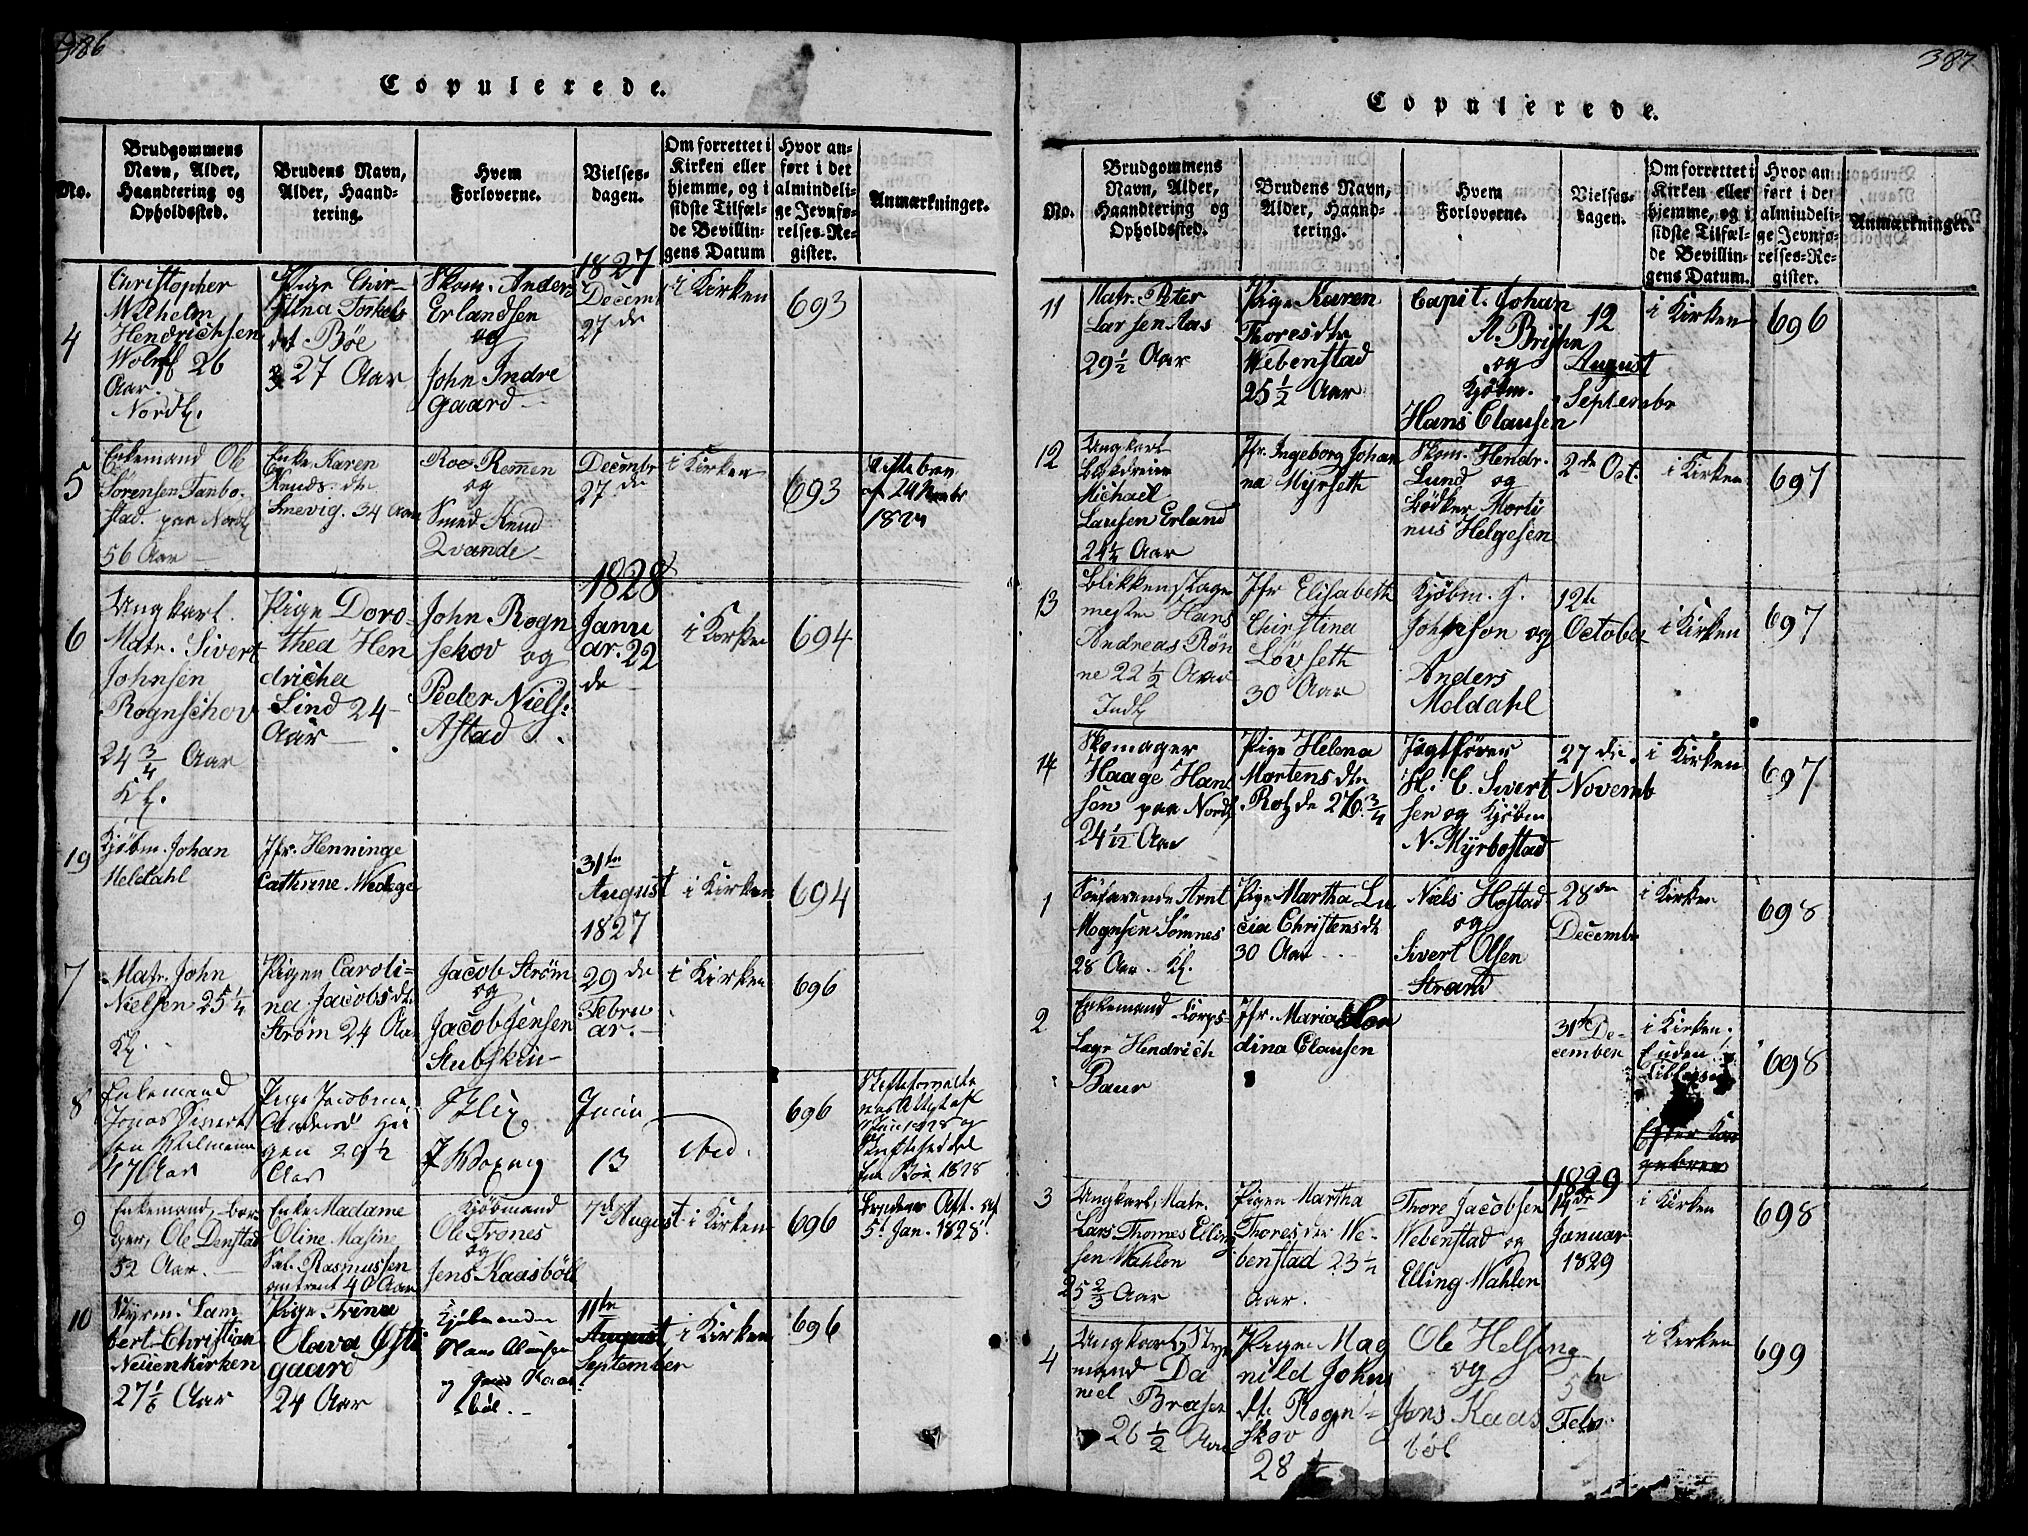 386
Copulerede.
No.
Brudgommens
Navn, Alder,
Haandtering og
Opholdssted.
Brudens Navn,
Alder, Haand-
tering.
Hvem
Forloverne.
Vielses-
dagen.
Om forrettet i
Kirken eller
hjemme, og i
sidste Tilfæl-
de Bevillin-
gens Datum
Hvor an-
ført i det
almindeli-
ge Jevnfø-
relses-Re-
gister.
Anmærkninger.
1827
4
Christopher
Wilhelm
Hendrichsen
26
Aar
Nordl.
Pige
det Böe
27 Aar
Skom. Anders
Erlandsen
og
John Indre
gaard
Decemb
27 de
i Kirken
693
5
Enkemand Ole
Sörensen
stad. paa Nordl
56 Aar
Enke Karen
Knuds. dtr
34 Aar
Roe Remen
og
Smed Knud
Qvande
Decembr
27 de
i Kirken
693
af 24
1827
1828
6
Ungkarl.
Matr. Sivert
Johnsen
Rognschov
24 3/4 Aar
Kl.
Pige Doro-
thea Hen
dricha
Lind 24
Aar
John Rogn
schov og
Peder Niels:
Astad
Janu
ar. 22
de
i Kirken
694
19
Kjöbm. Johan
Meldahl
Jfr. Henninge
Cathrine Wedege
31te
August
1827
i Kirken
694
7
Matr. John
Nielsen 25 1/4
Kl.
Pigen Caroli-
na Jacobsdtr
Ström 24 Aar
Jacob Ström
og
Jacob Jensen
Stubskin
29 de
Febru
ar.
i Kirken
696
8
Enkemand
Jonas
47 Aar
Pige
gen 29 1/2
Aar
Juni
13
ibid.
696
1828 og
Böe 1828
9
Enkemand, bor
ger, Ole Denstad
52 Aar.
Enke Madame
Oline Masine
Sal. Rasmussen
omtrent 40 Aar
Kjöbmand
Ole Trones
og
Jens Kaasböll
7de August
i Kirken
696
5. Jan. 1828.
10
Styrm. Lam
bert Christian
Neuenkirken
27 1/6 Aar
Pige Trine
Olava
gaard
24 Aar
Kjöbmænden
Hans Clausen
og Jens Kaas
böl.
11te
August
September
i Kirken
696
387
Copulerede.
No.
Brudgommens
Navn, Alder,
Haandtering og
Opholdssted.
Brudens Navn,
Alder, Haand-
tering.
Hvem
Forloverne.
Vielses-
dagen.
Om forrettet i
Kirken eller
hjemme, og i
sidste Tilfæl-
de Bevillin-
gens Datum.
Hvor an
ført i det
almindeli-
ge Jevnfø-
relses-Re-
gister.
Anmærkninger.
11
Matr. Peter
Larsen Aas
29 1/2 Aar
Pige Karen
Thoresdtr
Webenstad
25 1/2 Aar
Capit. Johan
A. Brishn
og
Kjöbm.
Hans Clausen
12
August
Septembr
i Kirken
696
12
Ungkarl
Michael
Larsen Erland
24 1/4 Aar
Jfr. Ingeborg Johan
na Myrseth
Skom. Hendr.
Lund og
Bödker Morti
nus Helgesen
2de Oct.
i Kirken
697
13
Blikkenslager
mester Hans
Andreas Rön
ne 22 1/2 Aar
Indl
Jfr Elisabeth
Christina
Lövseth
30 Aar
Kjöbm. J.
Johnson og
Anders
Moldahl
12te
October
i Kirken
697
14
Skomager
Haage Han
sen paa Nordl
24 1/12 Aar
Pige Helena
Mortensdtr
26 3/4
Jagtförer
H. C. Sivert
sen og Kjöbm
N. Myrbostad
27 de
Novemb
i Kirken
697
1
Söefarende Arnt
Mognsen Sömnes
28 Aar. Kl.
Pige Martha Lu
cia Christensdtr
30 Aar
Niels Hostad
og
Sivert Olsen
Strand
28 de
Decembr
i Kirken
698
2
Enkemand Corps-
Læge Hendrich
Baur
Jfr. Maria
dina Clausen
31te De-
cember
i Kirken
uden
698
1829
3
Ungkarl, Matr.
Lars Thomes Elling
sen Wahlen
25 2/3 Aar
Pigen Martha
Thoresdtr We-
benstad 23 1/2
Aar.
Thore Jacobsen
Webenstad og
Elling Wahlen
14de
Januar
1829
i Kirken
698
4
Ungkarl Styr
mand Da
niel Brasen
26 1/2 Aar
Pigen Mag
nild Johns
dtr. Rogn
skov
28
Ole Helsing
og
Jens Kaas
böl
5te
Febr
i Kirken
699